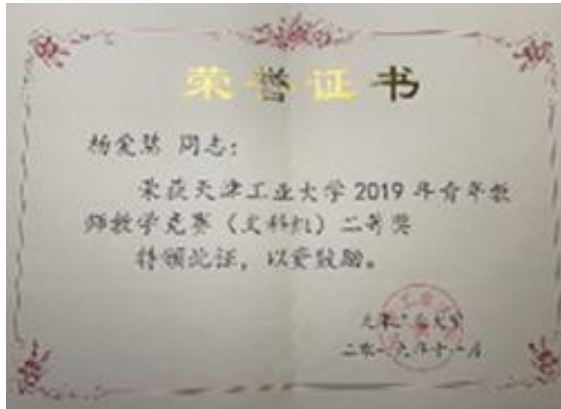 荣誉证书
杨爱慈 同志：
荣获天津工业大学2019年青年教
师教学竞赛（文科组）二等奖
特颁此证，以资鼓励。
天津工业大学
二零一九年十一月